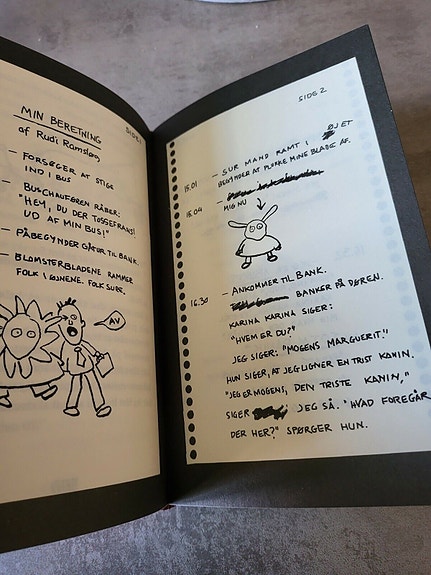 MIN BERETNING
af Rudi Ramsløg
SIDE 1
– FORSØGER AT STIGE
IND I BUS
– BUSCHAUFØREN RÅBER:
"HEY, DU DER TOSSEFRANS!
UD AF MIN BUS!"
– PÅBEGYNDER GÅTUR TIL BANK.
– BLOMSTERBLADENE RAMMER
FOLK I ØJNENE. FOLK SURE.
AV
SIDE 2
15.01 – SUR MAND RAMT I ØJET
BEGYNDER AT PLUKKE MINE BLADE AF.
15.04 –
MIG NU
– ANKOMMER TIL BANK.
16.30 – BANKER PÅ DØREN.
KARINA KARINA SIGER:
"HVEM ER DU?"
JEG SIGER: "MOGENS MARGUERIT."
HUN SIGER, AT JEG LIGNER EN TRIST KANIN.
"JEG ER MOGENS, DEN TRISTE KANIN,"
SIGER JEG SÅ. "HVAD FOREGÅR
DER HER?" SPØRGER HUN.